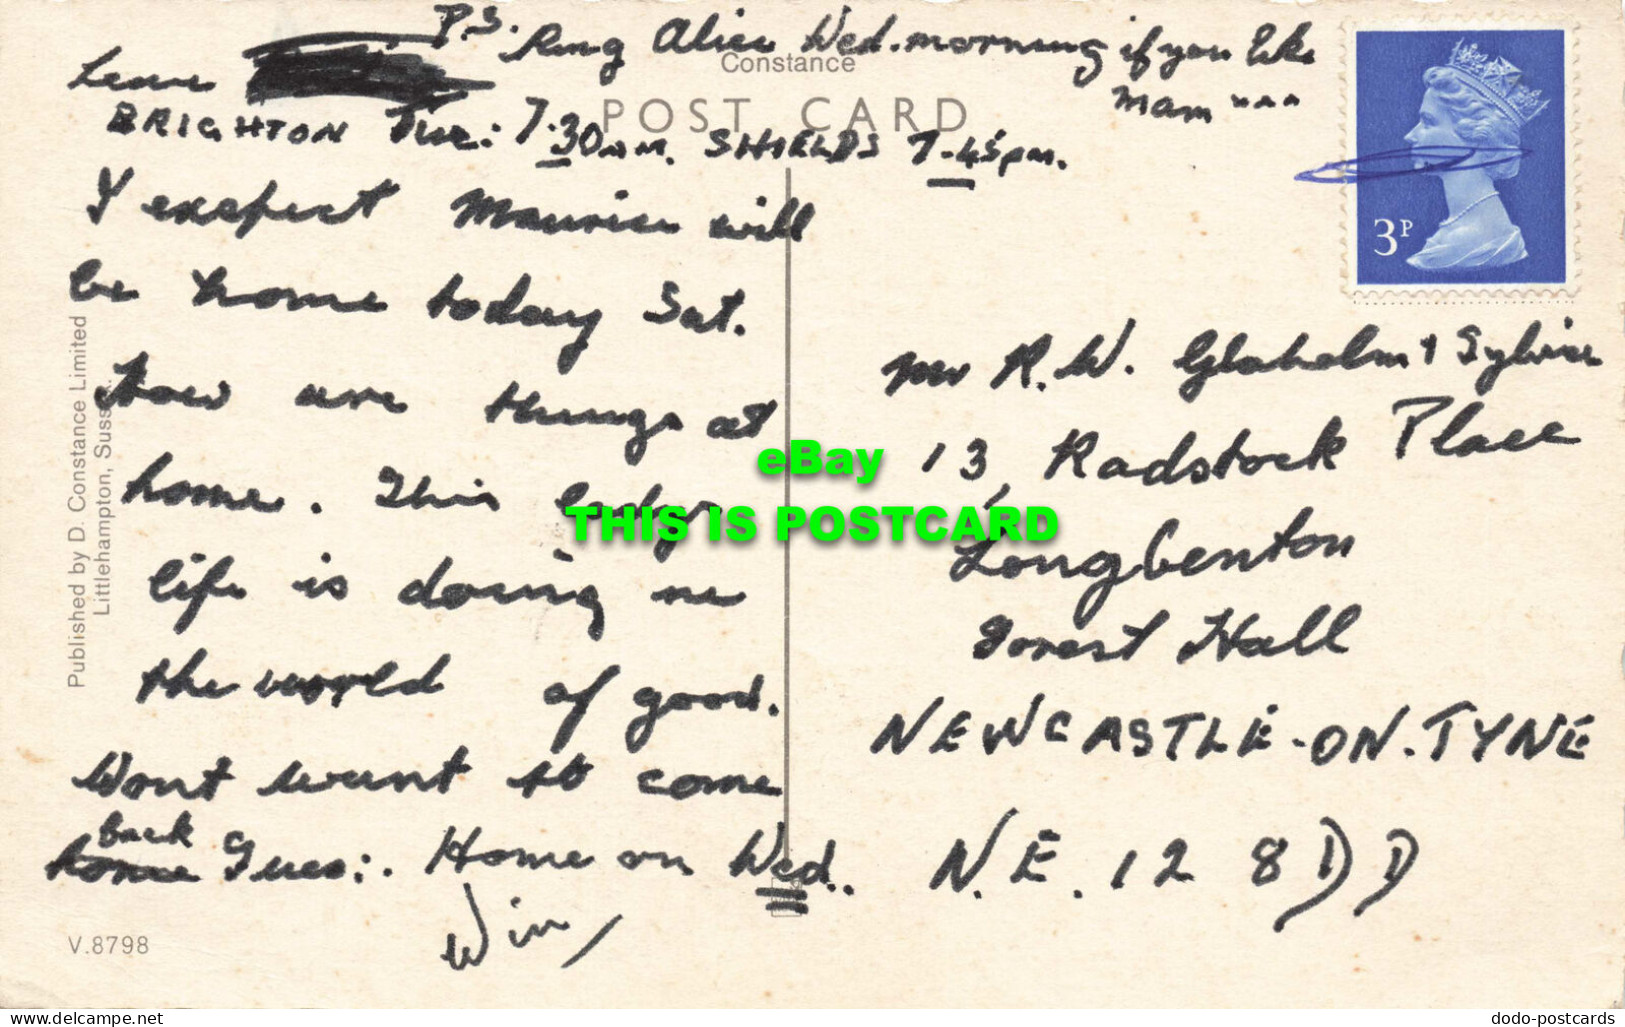 P.S. Ring Alice Wed. morning if you like
Mam xxx
Constance
POST CARD
Leave
BRIGHTON Tue: 7.30AM. SHIELDS 7.45pm.
I expect Maurice will
be home today Sat.
How are things at
home. This lady
life is doing me
the world of good.
Wont want to come
back
home Tues:. Home on Wed..
Win
3P
Mr R.W. Glaholm + Sylvia
13, Radstock Place
Longbenton
Forest Hall
NEWCASTLE-ON-TYNE
N.E. 12 8DD
Published by D. Constance Limited
Littlehampton, Sussex.
V.8798
eBay
THIS IS POSTCARD
delcampe.net
dodo-postcards